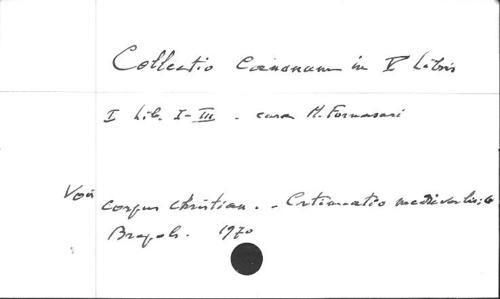 Collectio Canonum in V Libris
I Lib. I-III - cura M. Fornasari
Voir Corpus Christian. - Continuatio mediaevalis: 6
Brepols. 1970